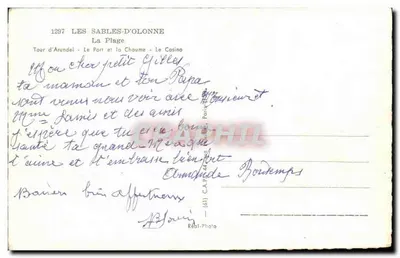 1297 LES SABLES-D'OLONNE
La Plage
Tour d'Arundel - Le Port et la Chaume - Le Casino
Mon cher petit Gilles
ta maman et ton Papa
sont venus nous voir avec Monsieur et
Mme Danis et des amis
J'espère que tu es en bonne
santé ta grand-mère qui
t'aime et t'embrasse bien fort
Armande Bontemps
Baisers bien affectueux
Real-Photo